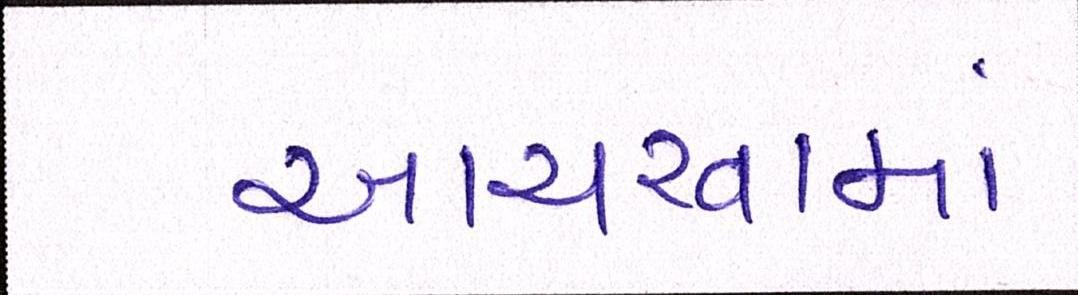 આચરવામાં